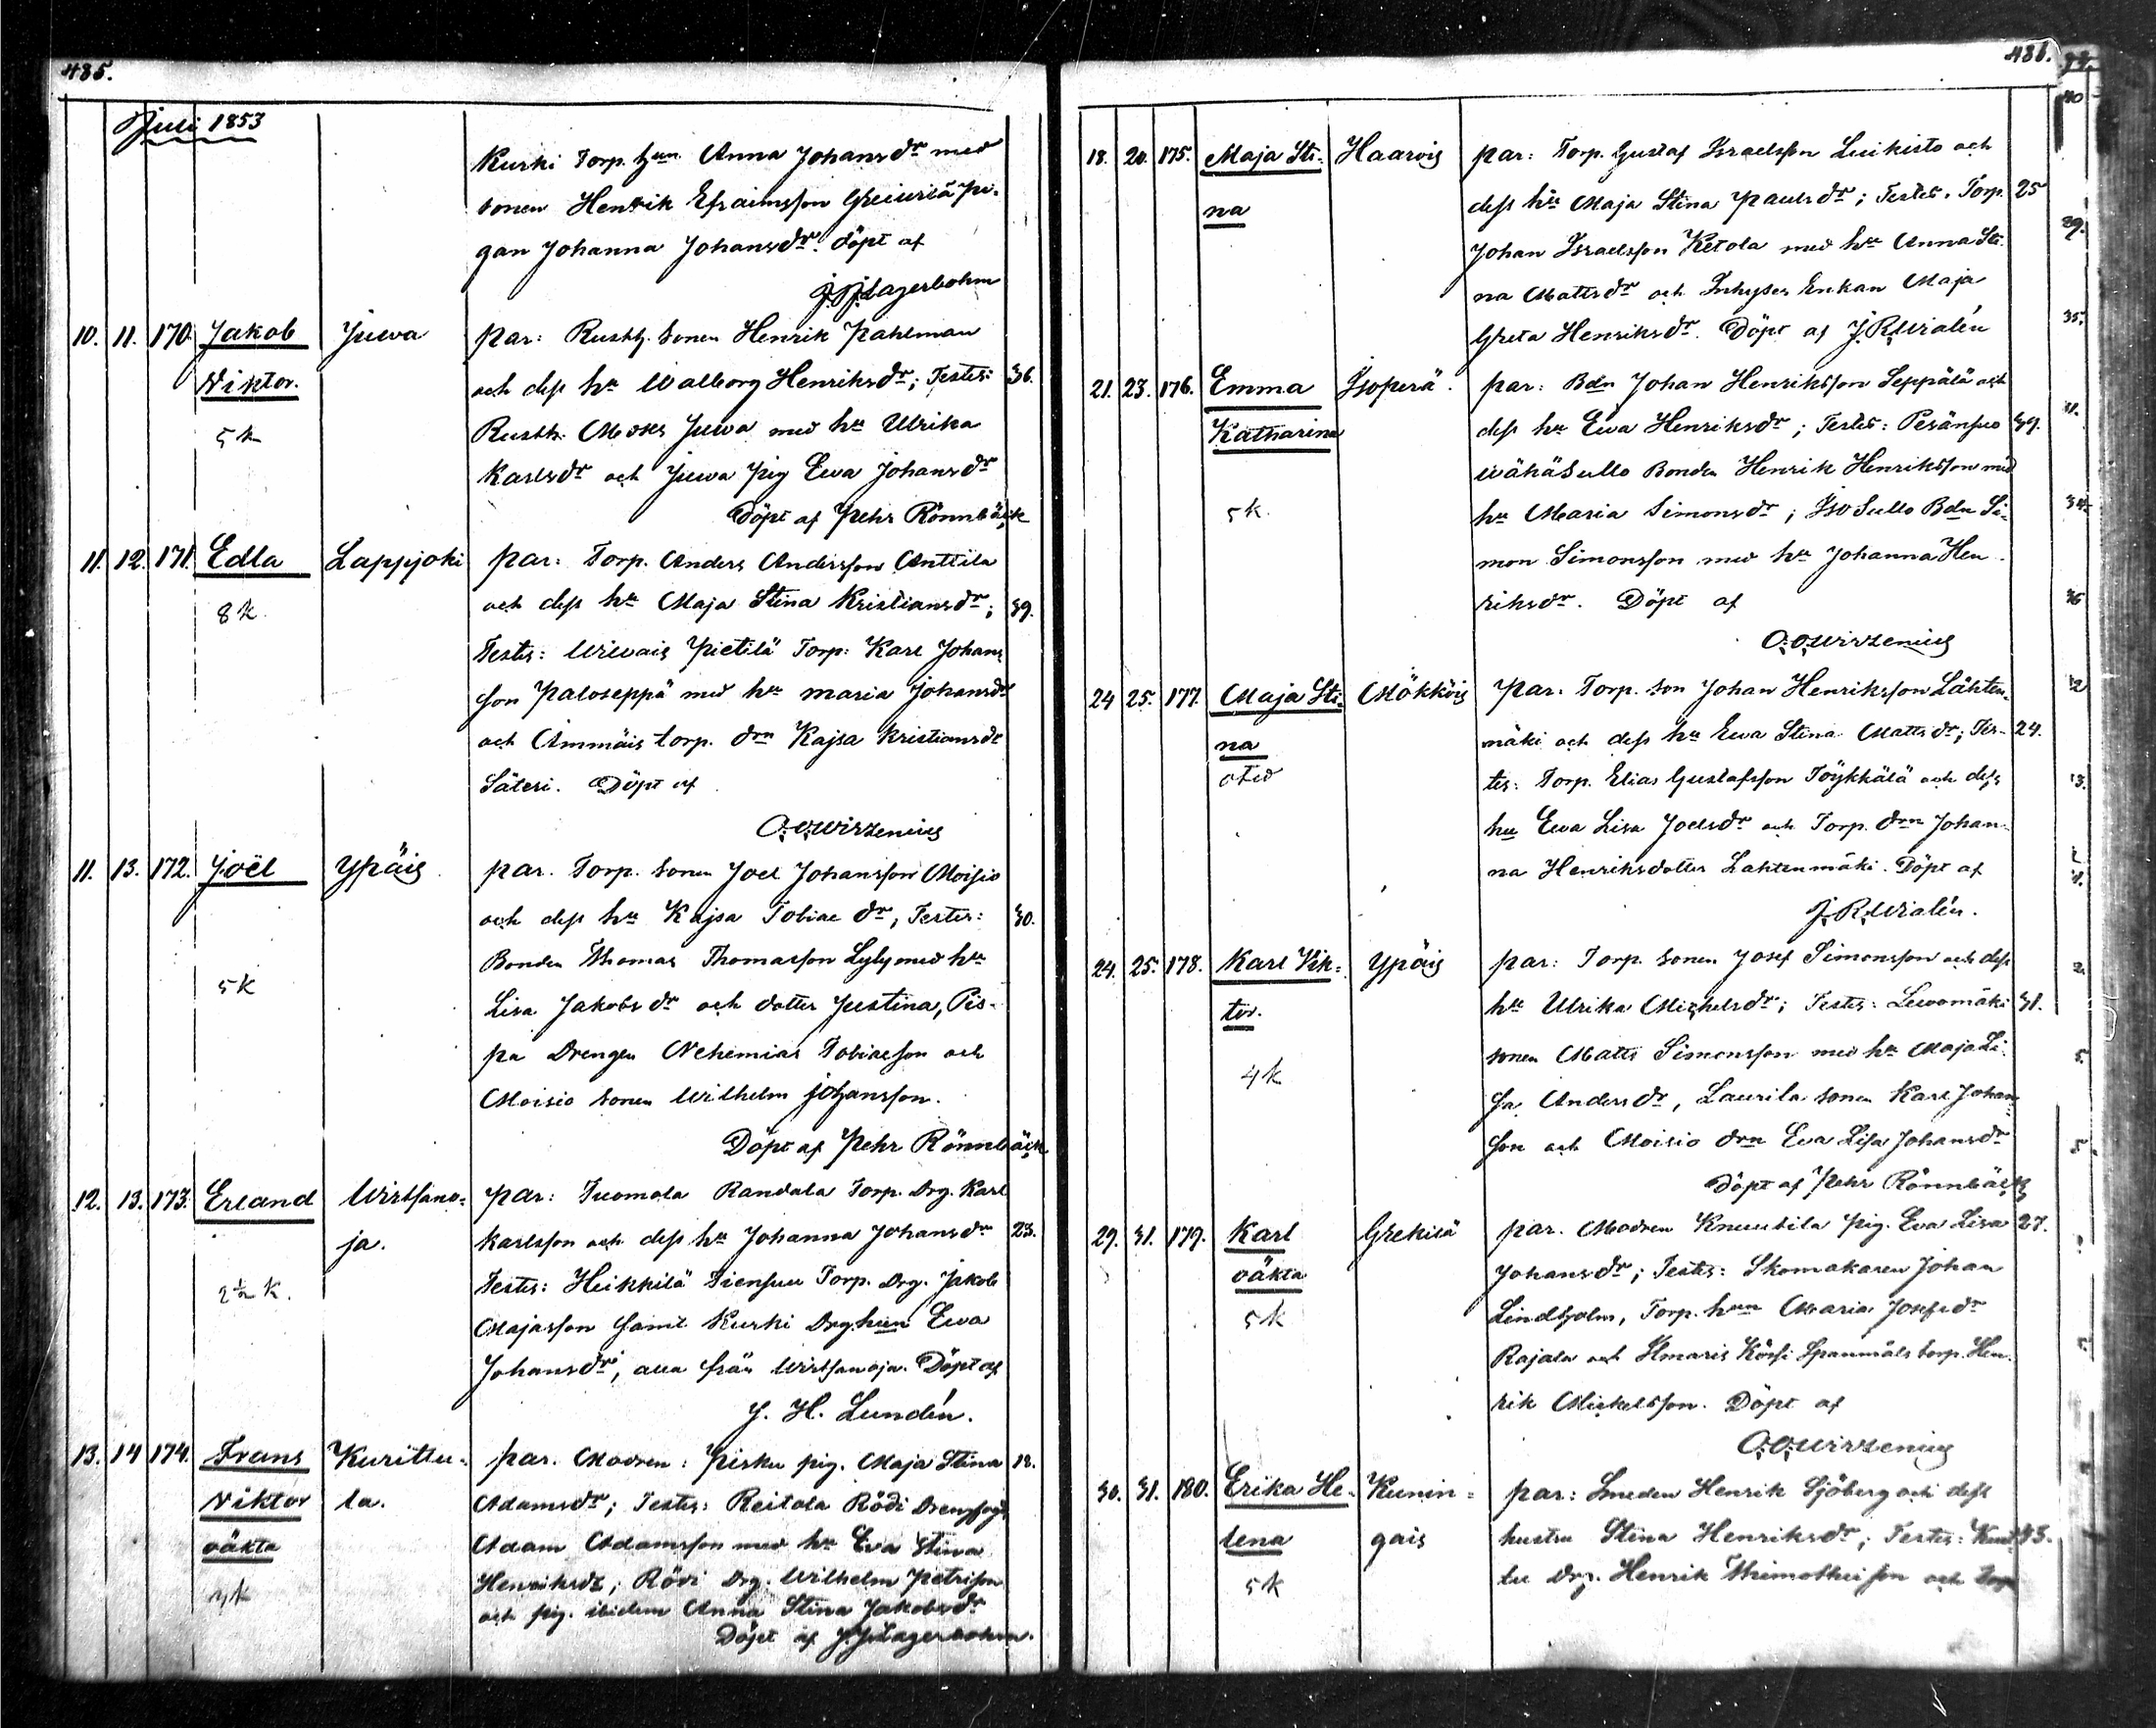 485.
Juli 1853
Kurski Torp. hun Anna Johansdr med
sonen Henrik Efraimsson Greiurlä pi-
gan Johanna Johansdr. Döpt af
J. J. Lagerbohm
10. 11. 170. Jakob Juwa par: Rusth. sonen Henrik Pahlman
Viktor. och dess hu Walborg Henriksdr; Testes: 36.
5 k Rusth. Moses Juwa med hu Ulrika
Karlsdr och Juwa pig Ewa Johansdr
Döpt af Pehr Rönnbäck
11. 12. 171. Edla Lappjoki par: Torp. Anders Andersson Anttila
8 k. och dess hu Maja Stina Kristiansdr; 39.
Testes: Wirwais Pietilä Torp: Karl Johans
son Paloseppä med hu Maria Johansdr
och Ämmäis torp. drn Kajsa Kristiansdr
Säteri. Döpt af
O. O. Wirzenius
11. 13. 172. Joël Ypäis par. Torp. sonen Joel Johansson Moisio
och dess hu Kajsa Tobiae dr, Testes: 30.
Bonden Thomas Thomasson Lyly med hu
5 k Lisa Jakobs dr och dotter Justina, Pis-
pa Drengen Nehemias Tobiaeson och
Moisio sonen Wilhelm Johansson.
Döpt af Pehr Rönnbäck
12. 13. 173. Erland Wirtsano- par: Tuomola Randala Torp. Drg. Karl
ja. Karlsson och dess hu Johanna Johansdr 23.
2½ k. Testes: Heikkilä Siensuu Torp. Drg. Jakob
Majasson samt Kurki Drg. hun Ewa
Johansdr, alla från Wirtsanoja. Döpt af
J. H. Lundén.
13. 14 174. Frans Kurittu- par. Modren: Pisku pig. Maja Stina 18.
Viktor la. Adamsdr; Testes: Reitola Rödi Drengfogd
oäkta Adam Adamsson med hu Eva Stina
Henriksdr; Rödi Drg. Wilhelm Petrison
och pig. ibidem Anna Stina Jakobsdr
Döpt af J. J. Lagerbohm.
486.
18. 20. 175. Maja Sti- Haarois par: Torp. Gustaf Israelsson Luikisto och
na dess hu Maja Stina Paulsdr; Testes. Torp. 25
Johan Israelsson Ketola med hu Anna Sti-
na Mattsdr och Inhyses Enkan Maja
Greta Henriksdr. Döpt af J. R. Wialén
21. 23. 176. Emma Isoperä. par: Bdn Johan Henriksson Seppälä och
Katharina dess hu Ewa Henriksdr; Testes: Peränsuo 39.
Wähä Sullo Bonden Henrik Henriksson med
5 k. hu Maria Simonsdr; Iso Sullo Bdn Si-
mon Simonsson med hu Johanna Hen-
riksdr. Döpt af
O. O. Wirzenius
24 25. 177. Maja Sti- Mökköis par. Torp. son Johan Henriksson Lähten-
na mäki och dess hu Ewa Stina Mattsdr; Tes- 24.
otid tes: Torp. Elias Gustafsson Töykkälä och dess
hu Ewa Lisa Joelsdr och Torp. drn Johan-
na Henriksdotter Lahtenmäki. Döpt af
J. R. Wialén.
24. 25. 178. Karl Vik- Ypäis par: Torp. sonen Josef Simonsson och dess
tor. hu Ulrika Michelsdr; Testes: Lewomäki 31.
4 k sonen Matts Simonsson med hu Maja Li-
sa Anders dr, Laurila sonen Karl Johan
son och Moisio drn Eva Lisa Johansdr
Döpt af Pehr Rönnbäck
29. 31. 179. Karl Grekilä par. Modren Knuutila pig. Eva Lisa 27.
oäkta Johansdr; Testes: Skomakaren Johan
5 k Lindholm, Torp. hun Maria Josefsdr
Rajala och Hmaris Körsi Spannmåls torp. Hen-
rik Mickelsson. Döpt af
O. O. Wirzenius
30. 31. 180. Erika He- Kunin- par: Smeden Henrik Sjöberg och dess
lena gais hustru Stina Henriksdr; Testes: 43.
5 k Drg. Henrik Thimotheison och Torp